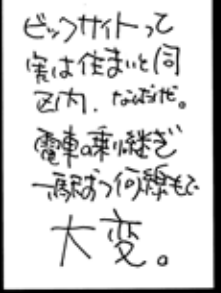 ビックサイトって
実は住まいと同
区内、なのだけど。
電車の乗り継ぎ
一駅ずつ何線もで
大変。